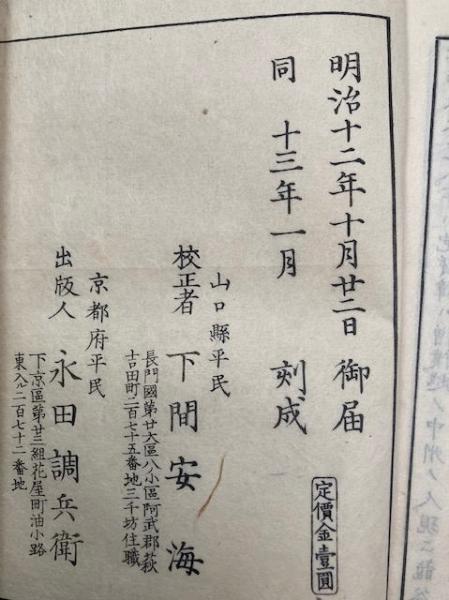 明治十二年十月廿二日 御届
同 十三年一月 刻成
定價金壹圓
山口縣平民
校正者 下間安海
長門國第廿大區八小區阿武郡萩
吉田町二百七十五番地三千坊住職
京都府平民
出版人 永田調兵衛
下京區第廿三組花屋町油小路
東入ル二百七十二番地